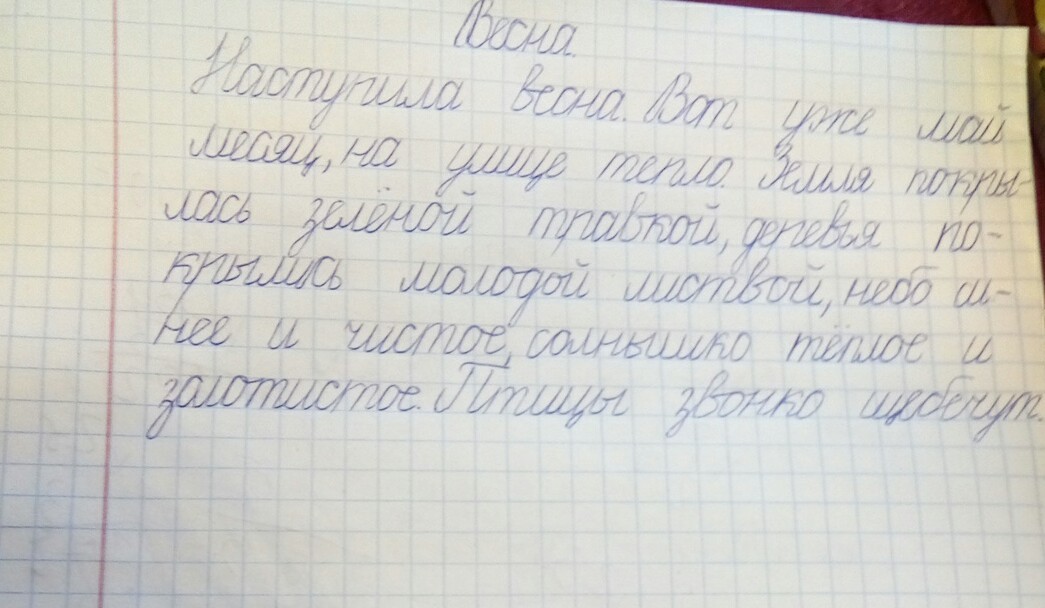 Весна.
Наступила весна. Вот уже май
месяц, на улице тепло. Земля покры-
лась зелёной травкой, деревья по-
крылись молодой листвой, небо си-
нее и чистое, солнышко тёплое и
золотистое. Птицы звонко щебечут.